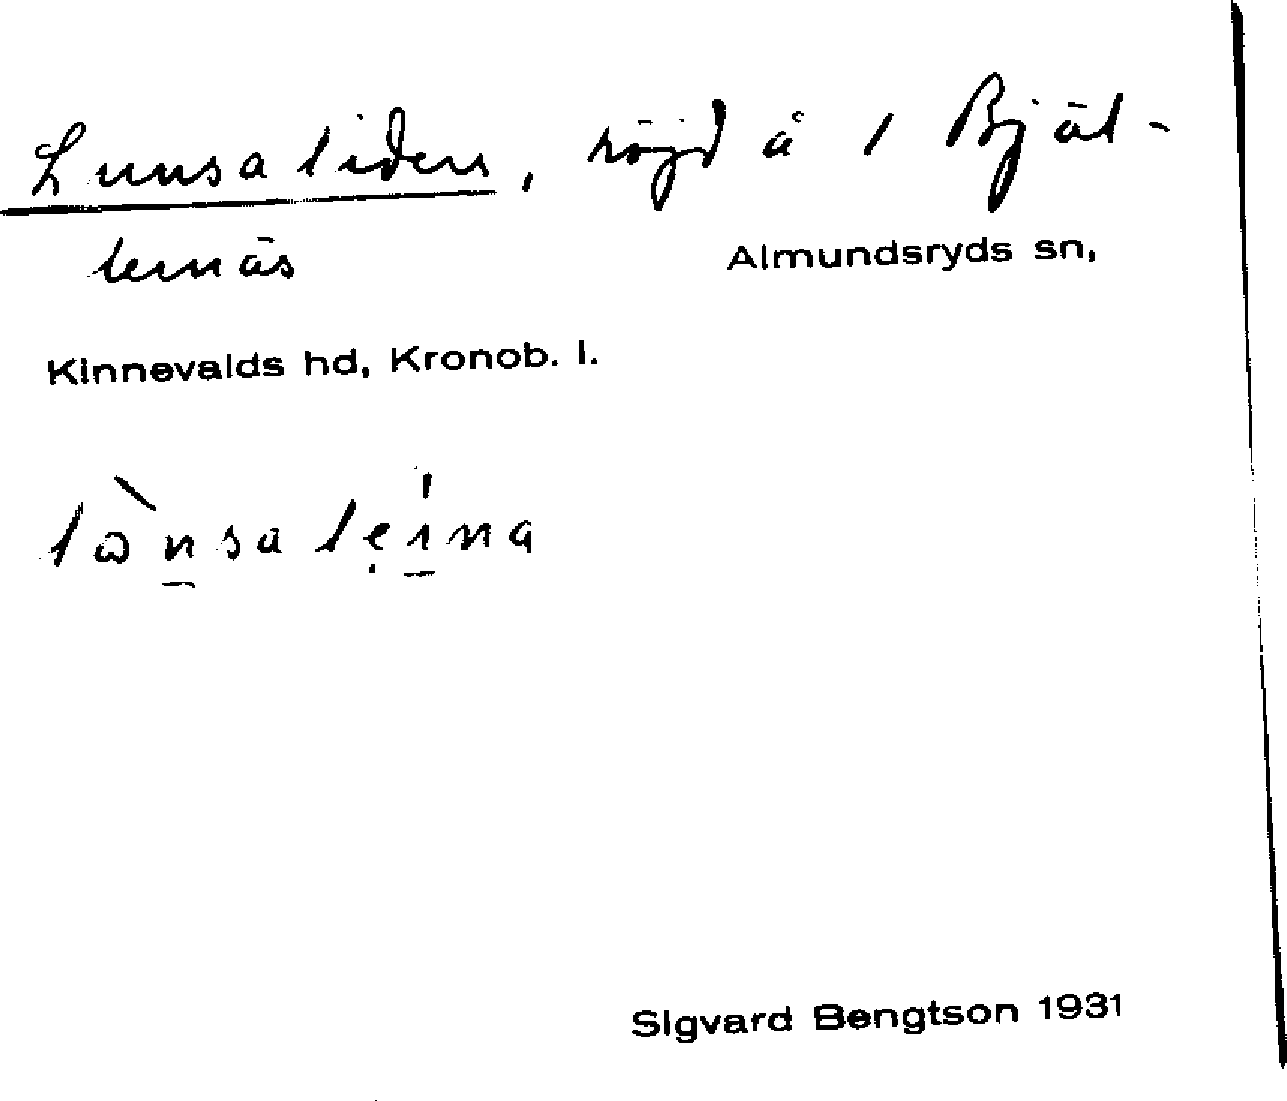 Lunsaliden, röjd å i Bjäl-
lernäs Almundsryds sn,
Kinnevalds hd, Kronob. l.
Sigvard Bengtson 1931